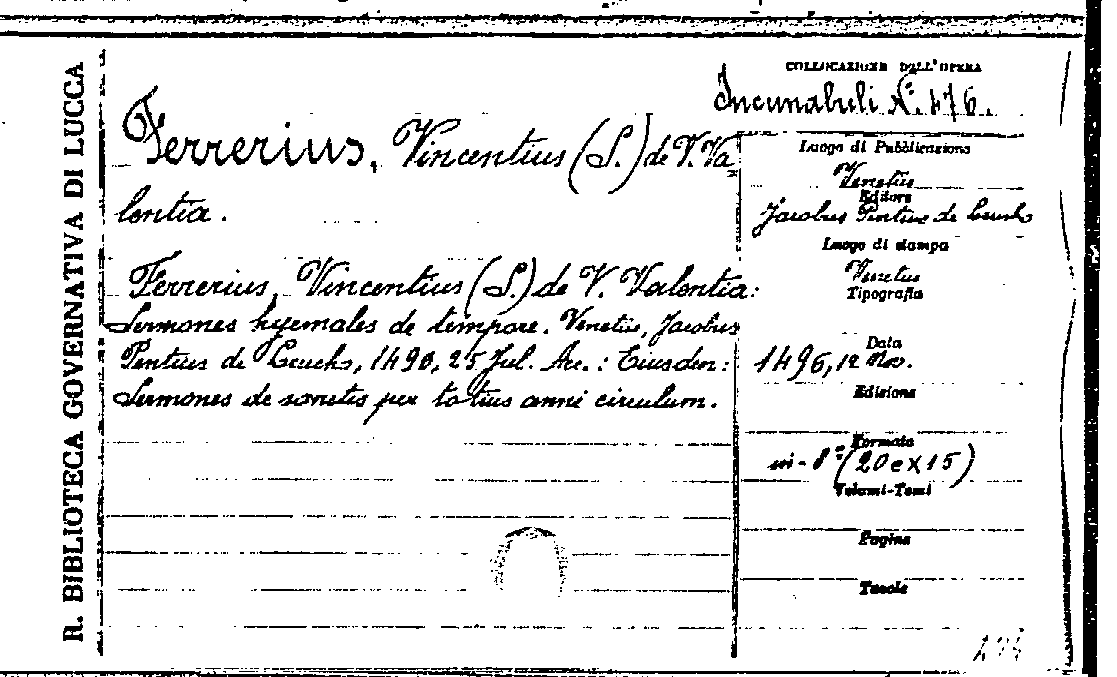 R. BIBLIOTECA GOVERNATIVA DI LUCCA
COLLOCAZIONE DELL'OPERA
Incunabuli N.º 476.
Ferrerius, Vincentius (S.) de V. Va
lentia.
Ferrerius, Vincentius (S.) de V. Valentia:
Sermones hyemales de tempore. Venetiis, Jacobus
Pentius de Leucho, 1496, 25 Jul. Acc.: Eiusdem:
Sermones de sanctis per totius anni circulum.
Luogo di Pubblicazione
Venetiis
Editore
Jacobus Pentius de Leucho
Luogo di stampa
Venetiis
Tipografia
Data
1496, 12 Nov.
Edizione
Formato
in-8º (20 e X 15)
Volumi-Tomi
Pagine
Tavole